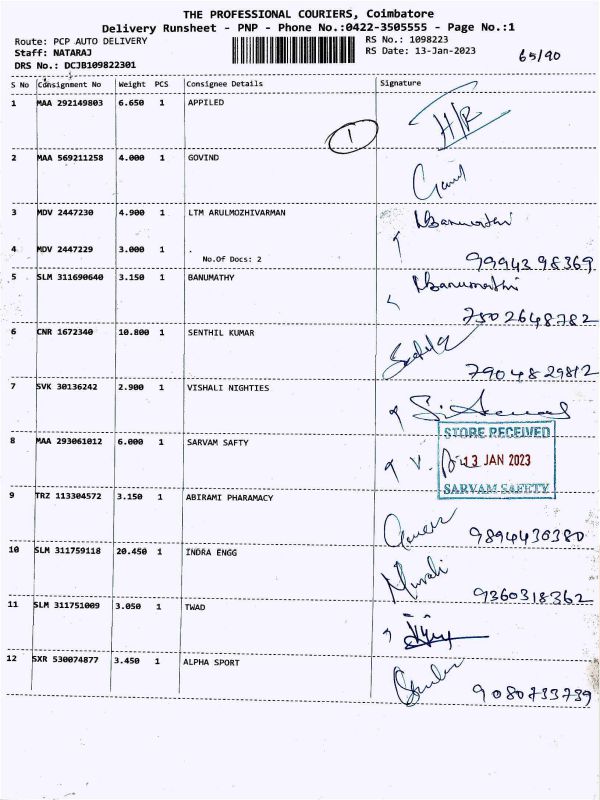 THE PROFESSIONAL COURIERS, Coimbatore
Delivery Runsheet - PNP - Phone No.:0422-3505555 - Page No.:1
Route: PCP AUTO DELIVERY
RS No.: 1098223
Staff: NATARAJ
RS Date: 13-Jan-2023
65/90
DRS No.: DCJB109822301
S No Consignment No Weight PCS Consignee Details Signature
1 MAA 292149803 6.650 1 APPILED
1
2 MAA 569211258 4.000 1 GOVIND
Govind
3 MDV 2447230 4.900 1 LTM ARULMOZHIVARMAN
N.Banumathi
4 MDV 2447229 3.000 1 .
No.Of Docs: 2
9994398369
5 SLM 311690640 3.150 1 BANUMATHY
N.Banumathi
7502648782
6 CNR 1672340 10.800 1 SENTHIL KUMAR
7904829812
7 SVK 30136242 2.900 1 VISHALI NIGHTIES
8 MAA 293061012 6.000 1 SARVAM SAFTY
STORE RECEIVED
13 JAN 2023
SARVAM SAFETY
9 TRZ 113304572 3.150 1 ABIRAMI PHARAMACY
9894430380
10 SLM 311759118 20.450 1 INDRA ENGG
Murali
9360318362
11 SLM 311751009 3.050 1 TWAD
12 SXR 530074877 3.450 1 ALPHA SPORT
9080733739